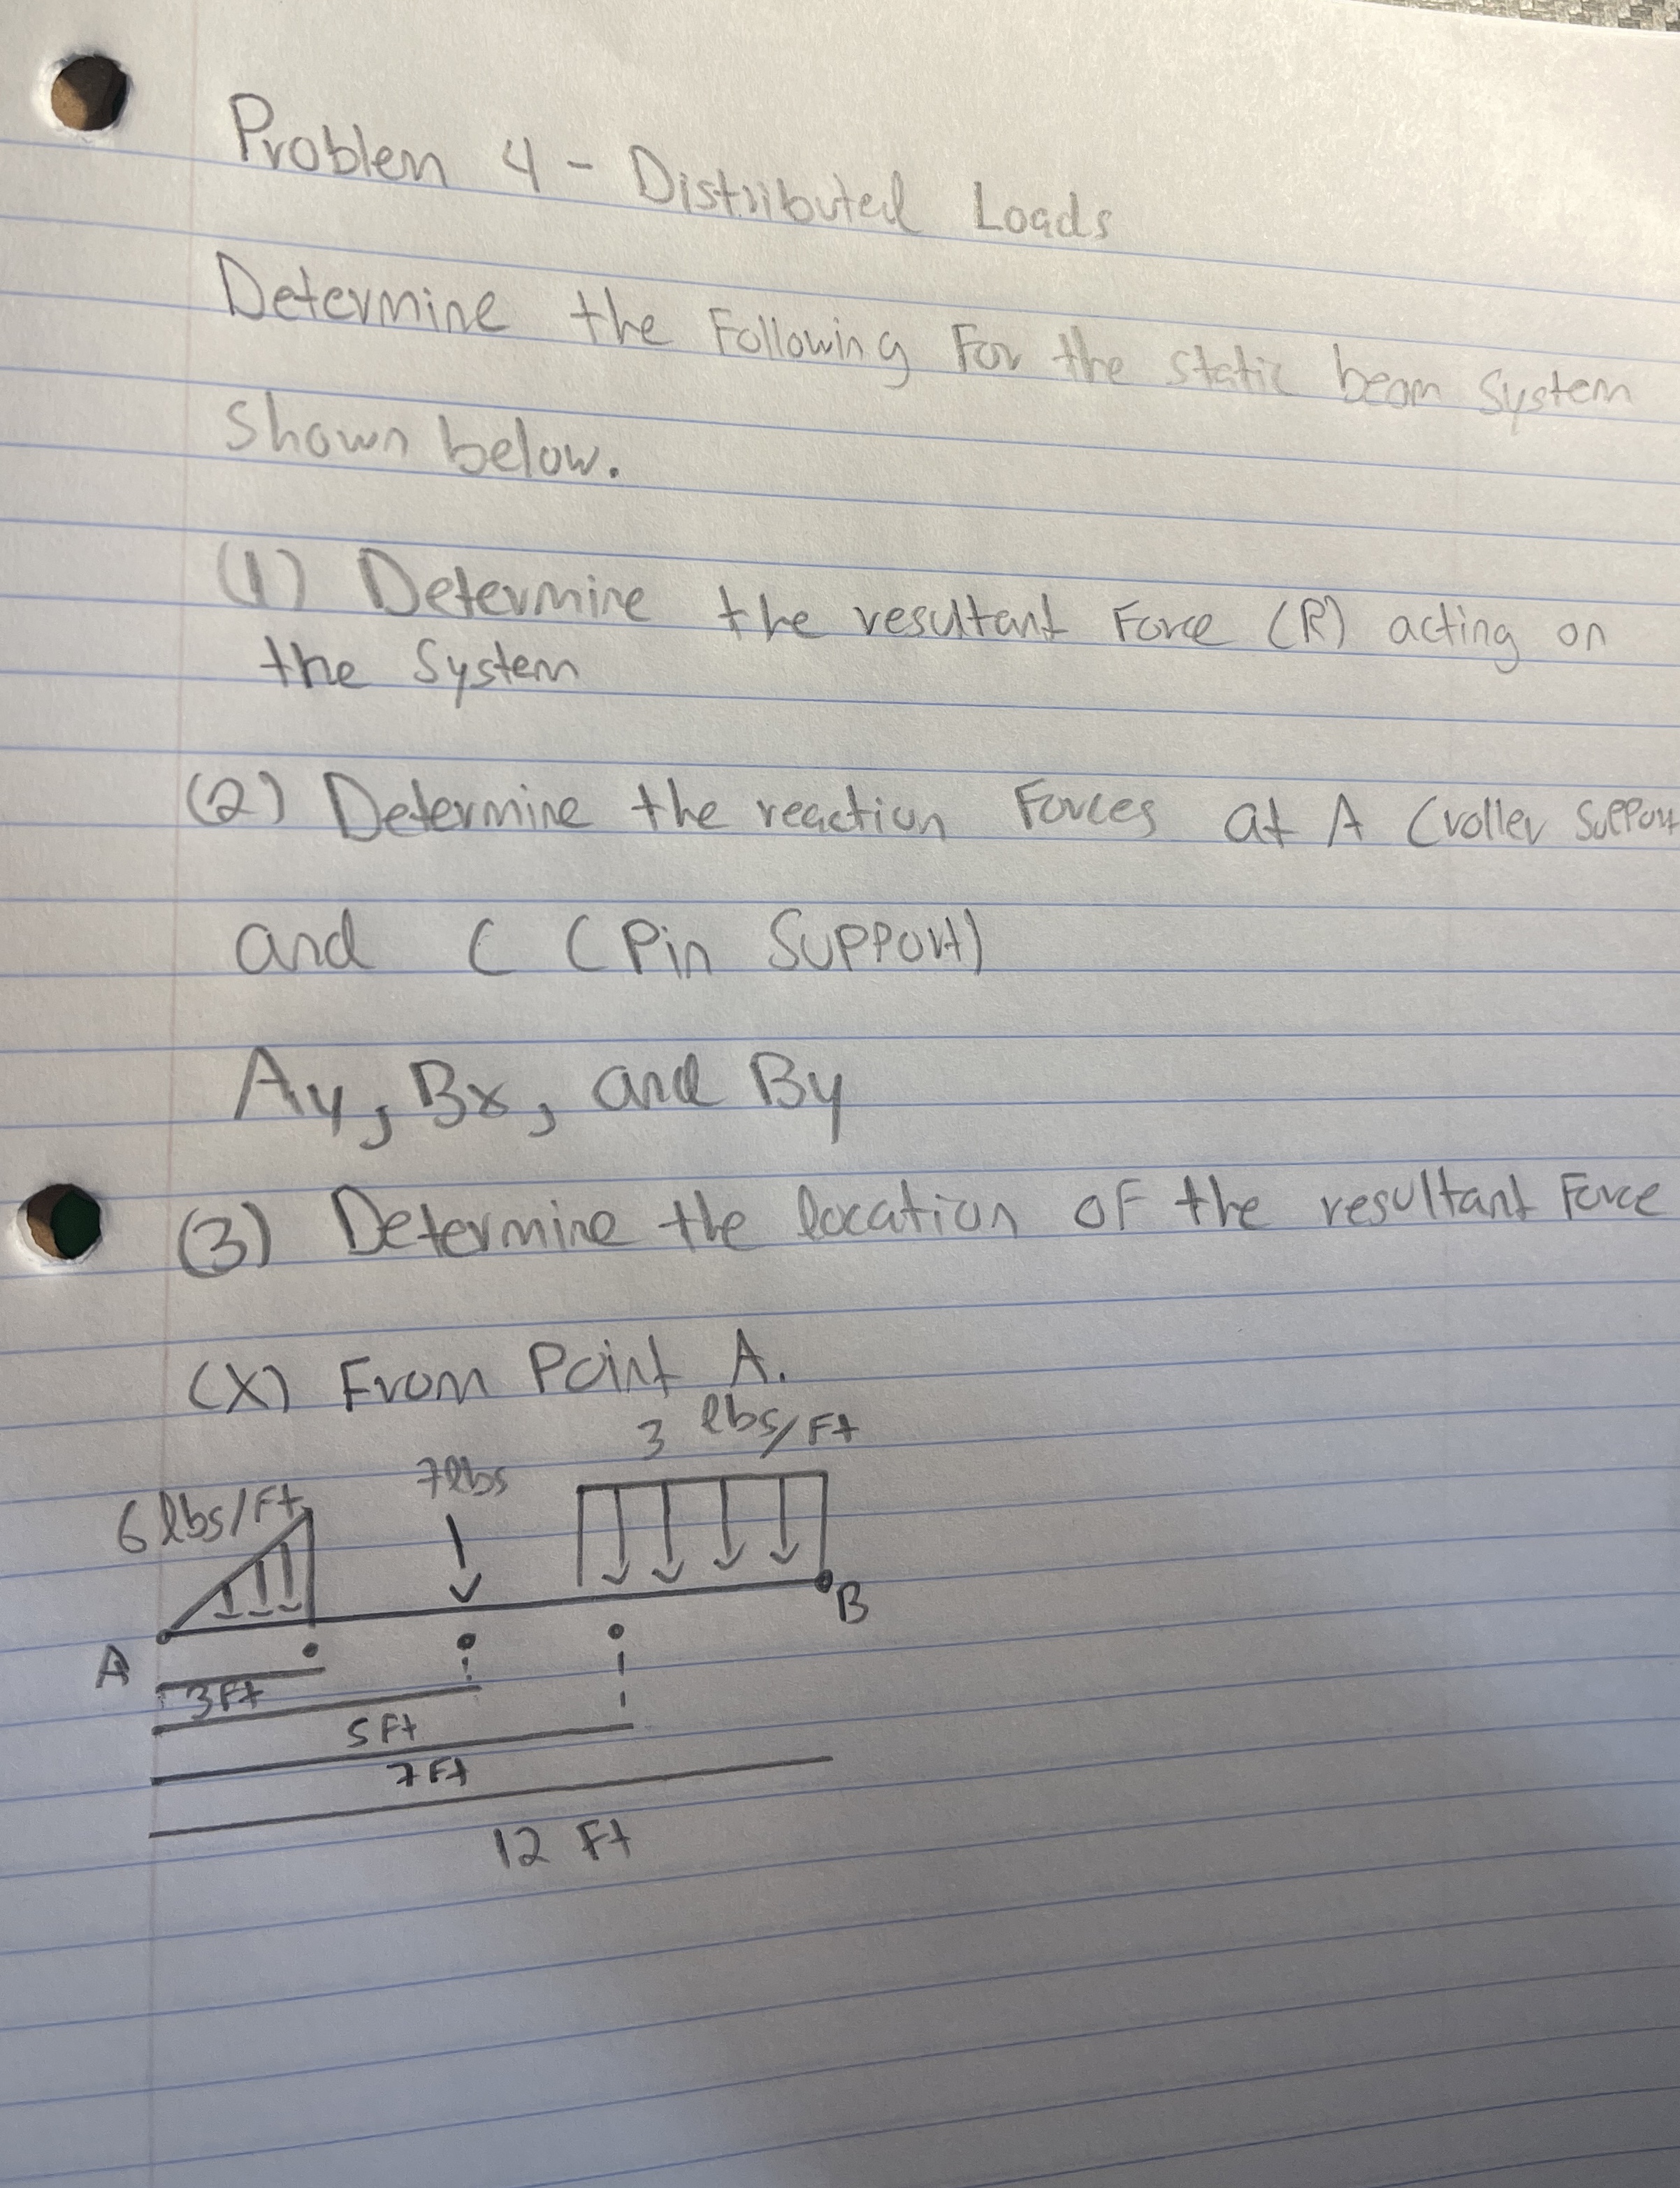 Problem 4 - Distributed Loads
Determine the Following For the static beam system
shown below.
(1) Determine the resultant Force (R) acting on
the System
(2) Determine the reaction Forces at A (roller Support
and C (Pin Support)
Ay, Bx, and By
(3) Determine the location of the resultant Force
(X) From Point A.
3 lbs/Ft
7lbs
6 lbs/Ft
B
A
3Ft
5 Ft
7 Ft
12 Ft